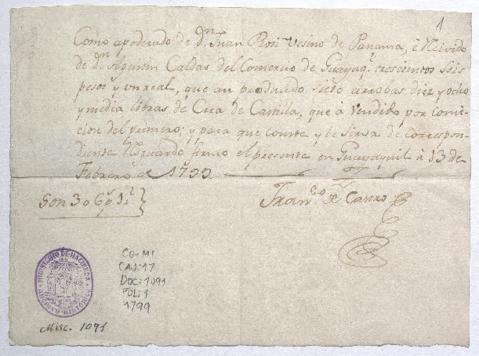 1
Como apoderado de Dn. Juan Rosi Vesino de Panama, é Resivido
de Dn. Agustin Caldas del Comercio de Guayaq. trescientos seis
pesos y un real, que an produsido siete arrobas diez y ocho
y media libras de Cera de Castilla, que á vendido por
del primero; y para que conste, y le sirva de correspon
diente Resguardo firmo el presente en Guayaquil á 13 de
Febrero de 1799
Son 306 ps. 1 rl.
Franco. de Castro
MINISTERIO DE HACIENDA
CO-MI
CAJ:17
DOC:1091
FOL:1
1799
Misc. 1091